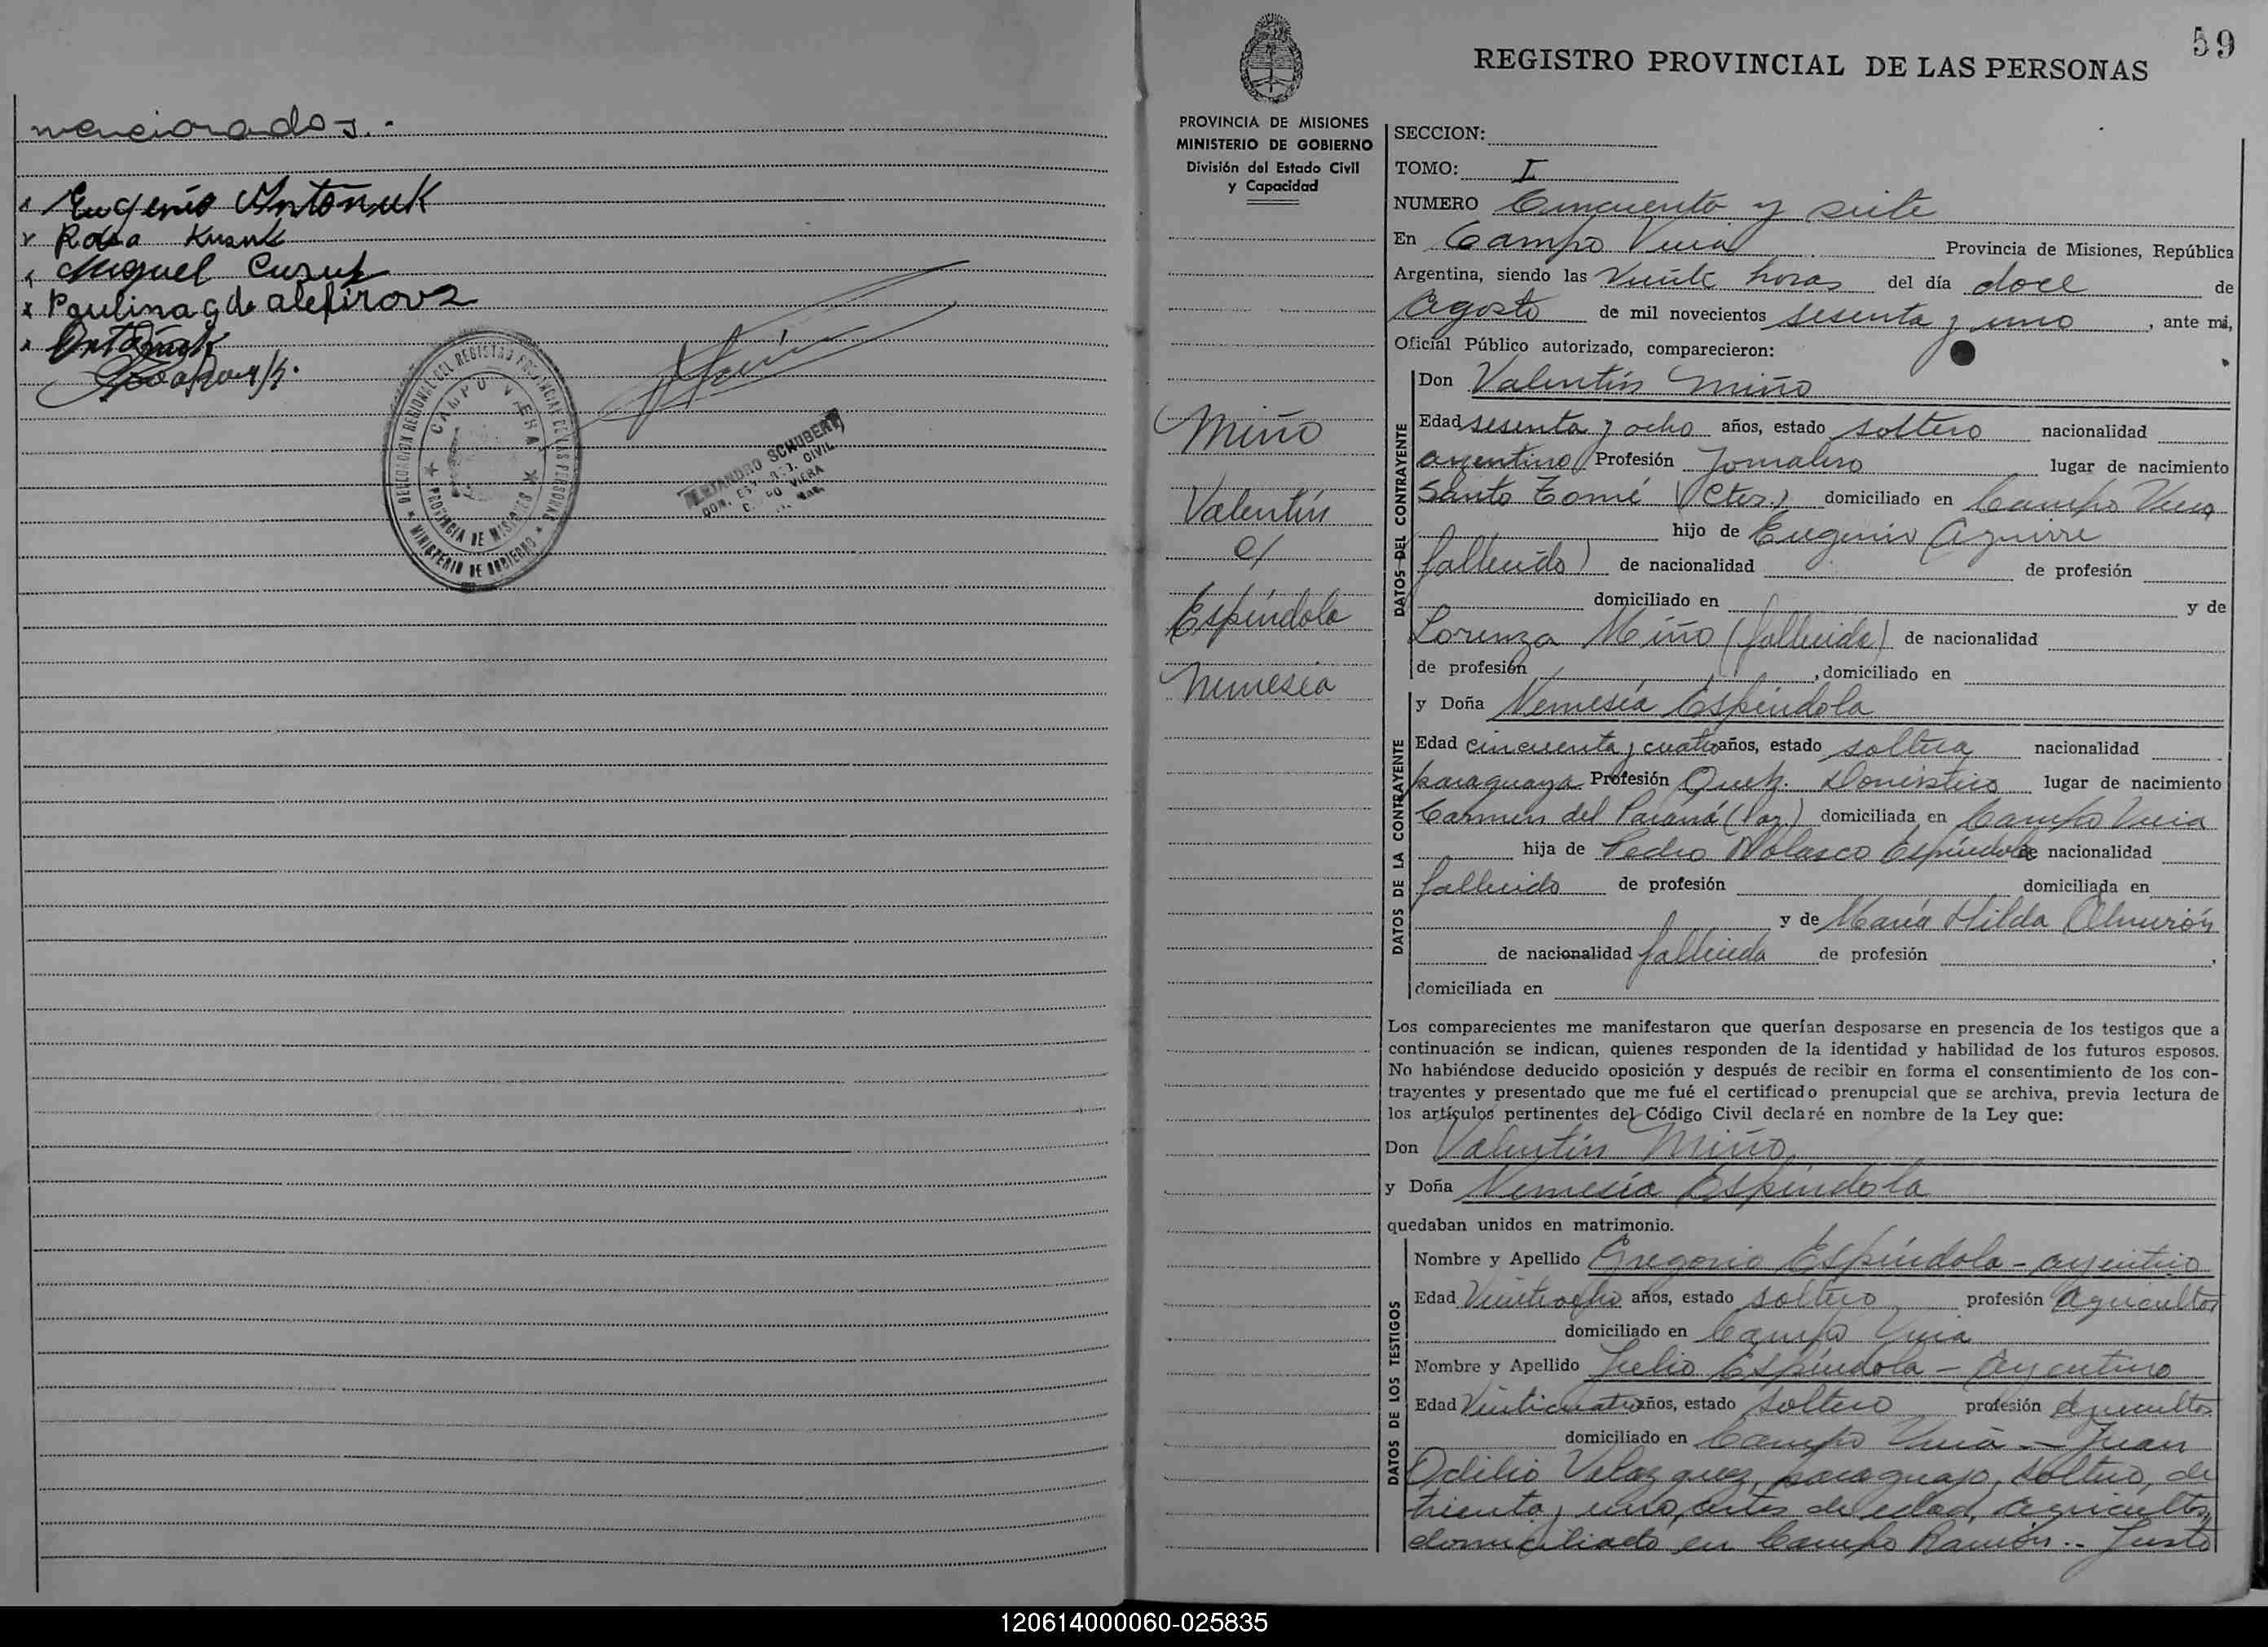 mencionados.-
Eugenio Antoniuk
Rosa Kusuk
Miguel Cusuk
Paulina G de alefirova
DELEGACION REGIONAL DEL REGISTRO PROVINCIAL DE LAS PERSONAS
CAMPO VIERA
PROVINCIA DE MISIONES
MINISTERIO DE GOBIERNO
ALEJANDRO SCHUBERT
59
REGISTRO PROVINCIAL DE LAS PERSONAS
PROVINCIA DE MISIONES
MINISTERIO DE GOBIERNO
División del Estado Civil
y Capacidad
Miño
Valentín
c/
Espíndola
Nemesia
SECCION:
TOMO: I
NUMERO Cincuenta y siete
En Campo Viera Provincia de Misiones, República
Argentina, siendo las Veinte horas del día doce de
Agosto de mil novecientos sesenta y uno, ante mí,
Oficial Público autorizado, comparecieron:
DATOS DEL CONTRAYENTE
Don Valentín Miño
Edad sesenta y ocho años, estado soltero nacionalidad
argentino Profesión Jornalero lugar de nacimiento
Santo Tomé (Ctes.) domiciliado en Campo Viera
hijo de Eugenio Aguirre
fallecido) de nacionalidad de profesión
domiciliado en y de
Lorenza Miño (fallecida) de nacionalidad
de profesión, domiciliado en
DATOS DE LA CONTRAYENTE
y Doña Nemesia Espíndola
Edad cincuenta y cuatro años, estado soltera nacionalidad
paraguaya Profesión Queh. Doméstico lugar de nacimiento
Carmen del Paraná (Par.) domiciliada en Campo Viera
hija de Pedro Nolasco Espíndola de nacionalidad
fallecido de profesión domiciliada en
y de María Hilda Almirón
de nacionalidad fallecida de profesión,
domiciliada en
Los comparecientes me manifestaron que querían desposarse en presencia de los testigos que a
continuación se indican, quienes responden de la identidad y habilidad de los futuros esposos.
No habiéndose deducido oposición y después de recibir en forma el consentimiento de los con-
trayentes y presentado que me fué el certificado prenupcial que se archiva, previa lectura de
los artículos pertinentes del Código Civil declaré en nombre de la Ley que:
Don Valentín Miño
y Doña Nemesia Espíndola
quedaban unidos en matrimonio.
DATOS DE LOS TESTIGOS
Nombre y Apellido Gregorio Espíndola - argentino
Edad Veintiocho años, estado soltero profesión Agricultor
domiciliado en Campo Viera
Nombre y Apellido Julio Espíndola - Argentino
Edad Veinticuatro años, estado soltero profesión Agricultor
domiciliado en Campo Viera - Juan
Odilio Velazquez, paraguayo, soltero, de
treinta y uno años de edad, agricultor,
domiciliado en Campo Ramón.- Justo
120614000060-025835